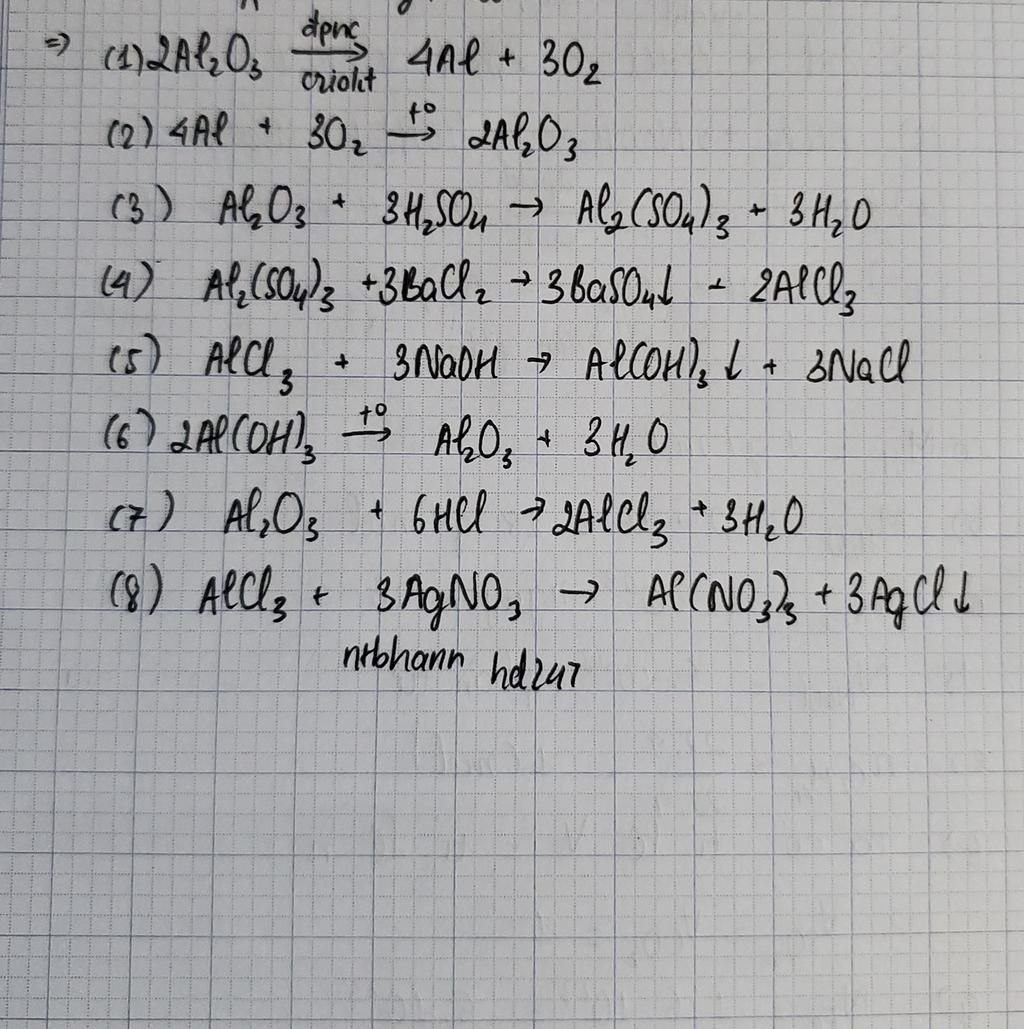 => (1) 2Al₂O₃ đpnc→ criolit 4Al + 3O₂
(2) 4Al + 3O₂ t°→ 2Al₂O₃
(3) Al₂O₃ + 3H₂SO₄ → Al₂(SO₄)₃ + 3H₂O
(4) Al₂(SO₄)₃ + 3BaCl₂ → 3BaSO₄↓ + 2AlCl₃
(5) AlCl₃ + 3NaOH → Al(OH)₃↓ + 3NaCl
(6) 2Al(OH)₃ t°→ Al₂O₃ + 3H₂O
(7) Al₂O₃ + 6HCl → 2AlCl₃ + 3H₂O
(8) AlCl₃ + 3AgNO₃ → Al(NO₃)₃ + 3AgCl↓
ntbhann hd247